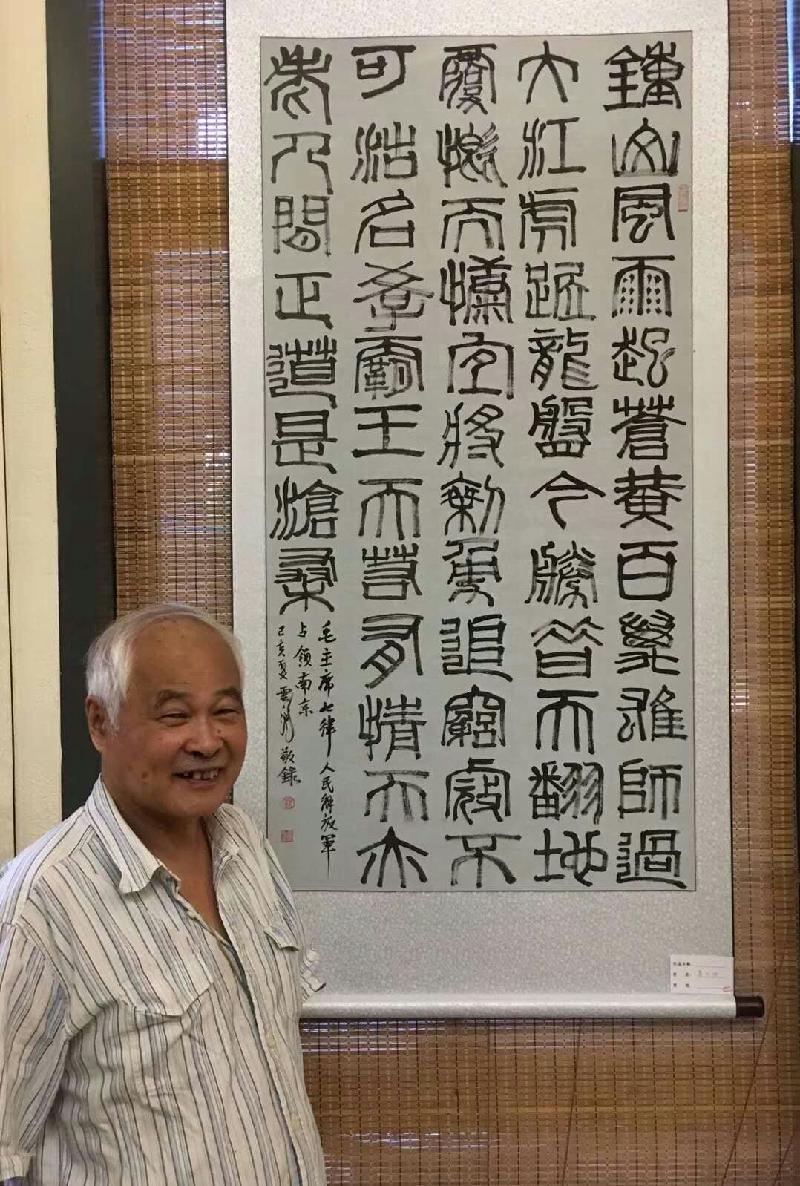 鍾山風雨起蒼黃百萬雄師過
大江虎踞龍盤今勝昔天翻地
覆慨而慷宜將剩勇追窮寇不
可沽名學霸王天若有情天亦
老人間正道是滄桑
毛主席七律 人民解放軍
占領南京
己亥夏雲敬錄